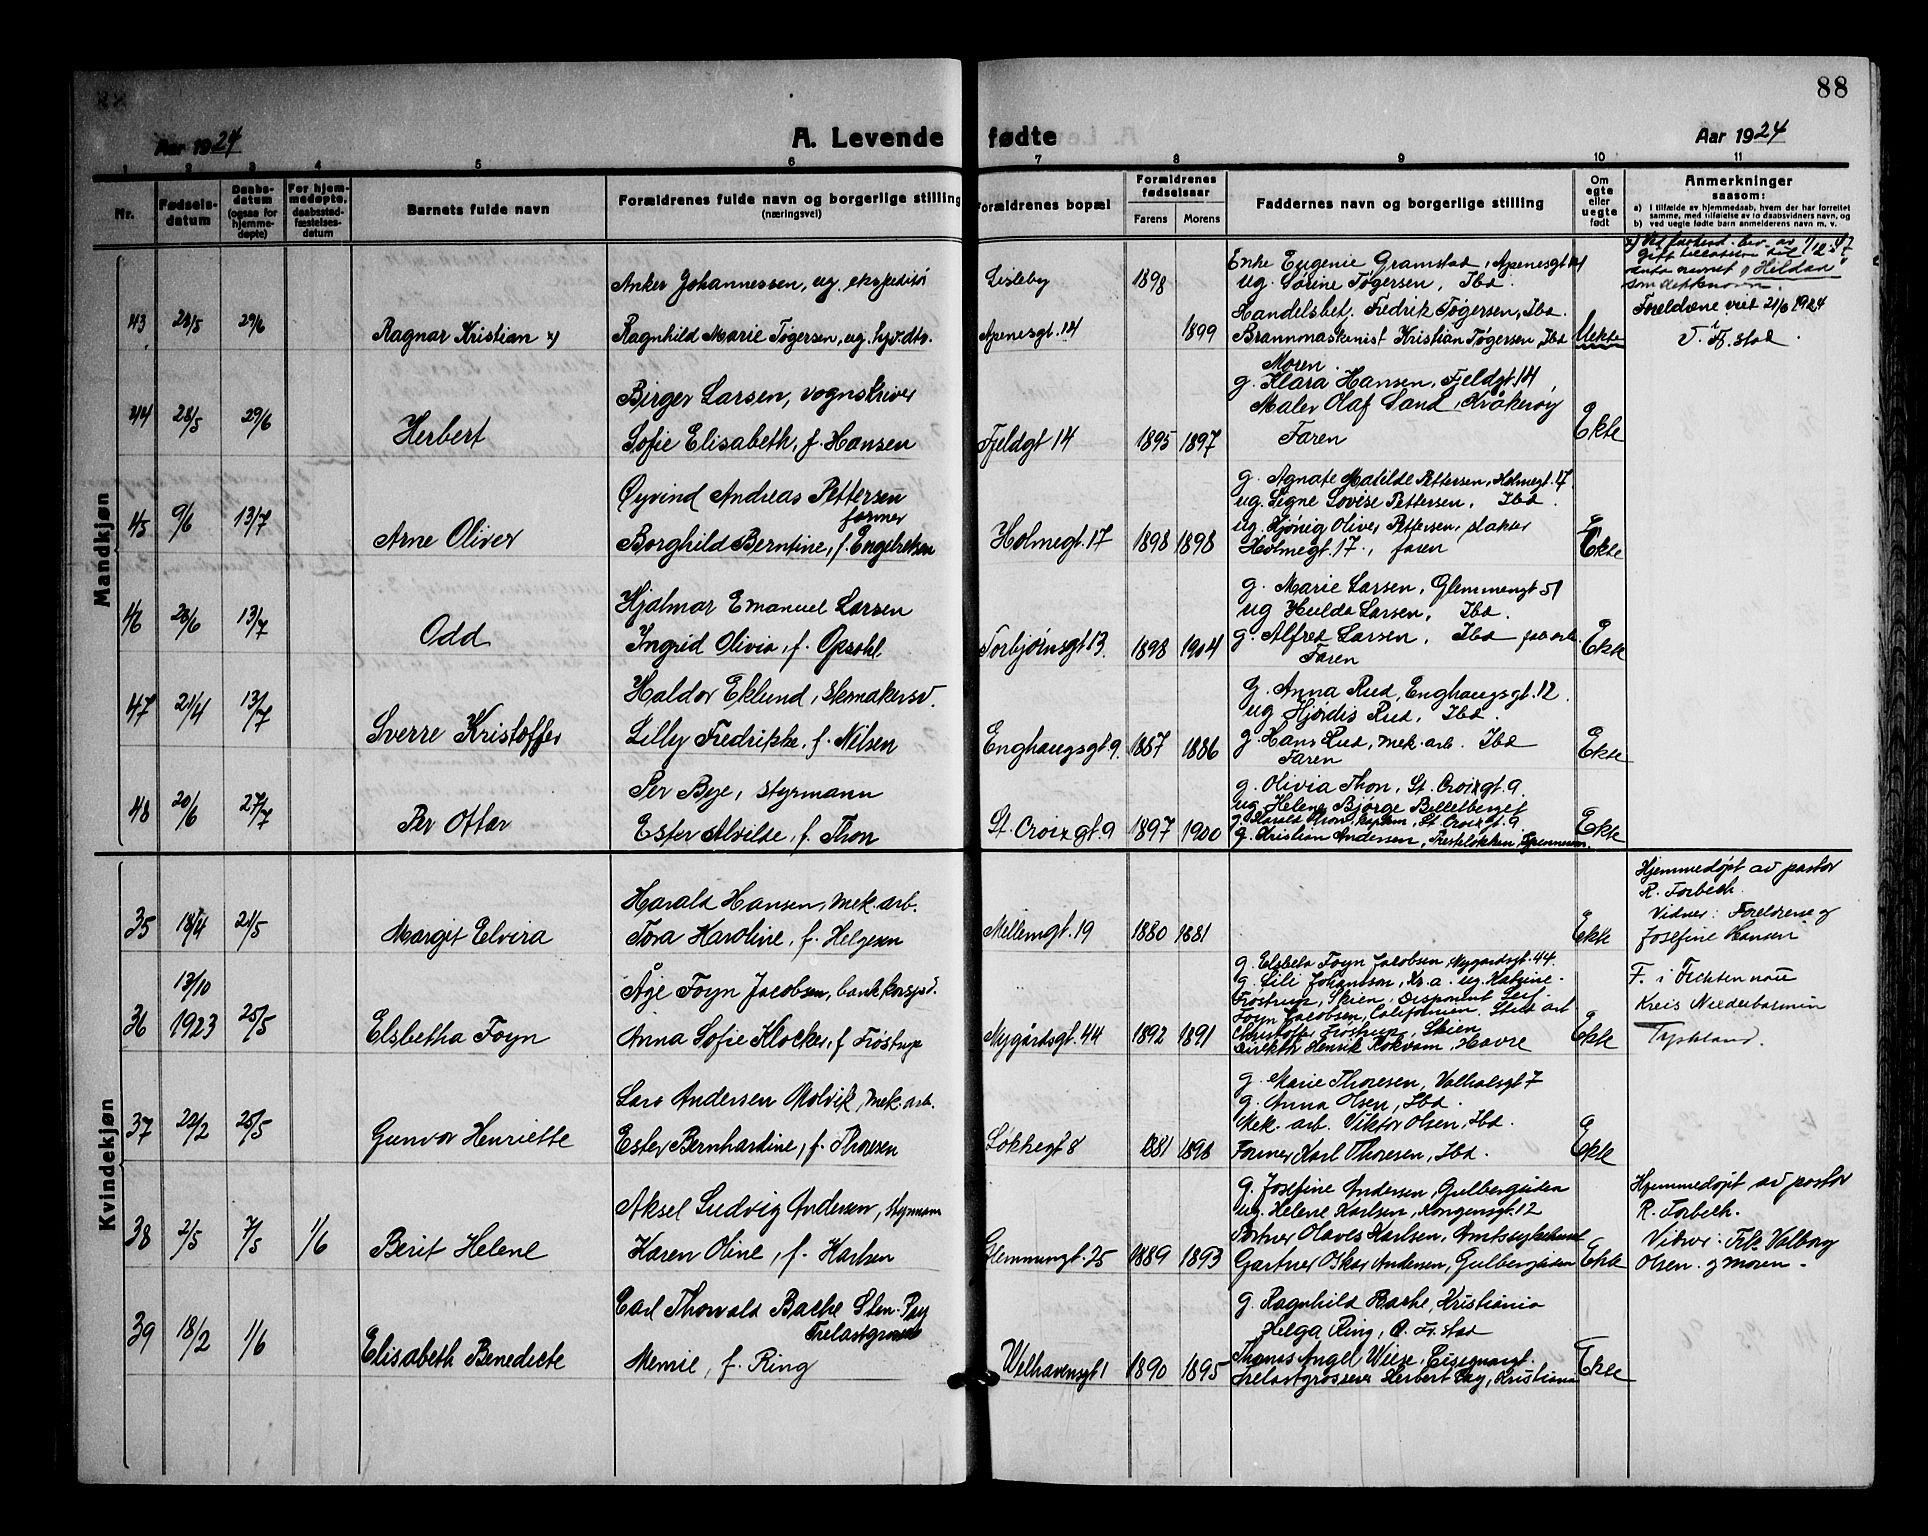 88
Aar 1924
A. Levende fødte
Aar 1924
1 2 3 4 5 6 7 8 9 10 11
Nr.
Fødsels-
datum
Daabs-
datum
(ogsaa for
hjemme-
døpte)
For hjem-
medøpte,
daabsstad-
fæstelses-
datum
Barnets fulde navn
Forældrenes fulde navn og borgerlige stilling
(næringsvei)
Forældrenes bopæl
Forældrenes
fødselsaar
Farens Morens
Faddernes navn og borgerlige stilling
Om
egte
eller
uegte
født
Anmerkninger
saasom:
a) i tilfælde av hjemmedaab, hvem der har forrettet
samme, med tilføielse av to daabsvidners navn, og
b) ved uegte fødte barn anmelderens navn m. v.
Mandkjøn
43 28/5 29/6
Ragnar Kristian x)
Anker Johannessen, ug. ekspeditør
Ragnhild Marie Tøgersen, ug. hjv. dtr.
Lisleby
Apenesgt. 14
1898 1899
Enke Eugenie Gramstad, Apenesgt 14
ug. Sørine Tøgersen, Ibd.
Handelsbetj. Fredrik Tøgersen, Ibd.
Brannmaskenist Kristian Tøgersen, Ibd
Uekte
1/12-47
"Hildan"
som
Foreldrene viet 21/6 1924
i F.stad.
44 28/5 29/6
Herbert
Birger Larsen, vognskriver
Sofie Elisabeth, f. Hansen
Fjeldgt 14
1895 1897
Moren.
g. Klara Hansen, Fjeldgt. 14,
Maler Olaf Sand, Kråkerøy
Faren
Ekte
45 9/6 13/7
Arne Oliver
Øyvind Andreas Pettersen
former
Borghild Berntine, f. Engelretsen
Holmegt. 17
1898 1898
g. Agnate Matilde Pettersen, Holmegt. 17
ug. Signe Lovise Pettersen, Ibd.
ug. Oliver Pettersen, slakter
Holmegt. 17., faren
Ekte
46 23/6 13/7
Odd
Hjalmar Emanuel Larsen
Ingrid Olivia, f. Opsahl.
Torbjørnsgt 13.
1898 1904
g. Marie Larsen, Glemmengt 51
ug Hulda Larsen, Ibd.
g. Alfred Larsen, Ibd fab. arb.
Faren
Ekte
47 21/4 13/7
Sverre Kristoffer
Haldor Eklund, skomakersv.
Lilly Fredrikke, f. Nilsen
Enghaugsgt 9.
1887 1886
g. Anna Rud, Enghaugsgt. 12.
ug Hjørdis Rud, Ibd.
g. Hans Rud, mek. arb. Ibd
Faren
Ekte
48 20/6 27/7
Per Ottar
Per Bye, styrmann
Ester Alvilde, f. Thon
St. Croixgt. 9
1897 1900
g. Olivia Thon, St. Croixgt 9.
ug. Helene Bjørge Billetberget
g. Harald Thon, kaptein, St. Croixgt. 9.
g. Kristian Andersen,
Ekte
Kvindekjøn
35 18/4 21/5
Margit Elvira
Harald Hansen, mek. arb.
Tora Karoline, f. Helgesen
Mellemgt. 19
1880 1881
Ekte
Hjemmedøpt av pastor
R. Forbech.
Vidner: Foreldrene og
Josefine Hansen
36 13/10
1923 25/5
Elsbetha Foyn
Åge Foyn Jacobsen, bankkorresp.
Anna Sofie Klocker, f Frøstrup
Nygårdsgt. 44
1892 1891
g. Elsbeta Foyn Jacobsen, Nygårdsgt. 44
g. Lili Johansson, Kr.a. ug. Katrine
Frøstrup, Skien, Disponent Leif
Foyn Jacobsen, Californien. Stud art
Christoffer Frøstrup, Skien
Direktør Henrik Kokvam, Havre
Ekte
F. i Fichtenau
Kreis Niederbarmin
Tyskland.
37 22/2 25/5
Gunvor Henriette
Lars Andersen Molvik, mek. arb.
Ester Bernhardine, f. Thoresen
Løkkegt 8
1881 1898
g. Marie Thoresen, Valhalsgt 7
g. Anna Olsen, Ibd.
Mek. arb. Viktor Olsen, Ibd.
Former Karl Thoresen, Ibd.
Ekte
38 2/5 7/5 1/6
Berit Helene
Aksel Ludvig Andersen, styrmann
Karen Oline, f. Karlsen
Glemmengt. 25
1889 1893
g. Josefine Andersen, Gulbergsiden
ug. Helene Karlsen, Kongensgt. 12
Portner Olaves Karlsen, Amtssykehuset
Gartner Oskar Andersen, Gulbergsiden
Ekte
Hjemmedøpt av pastor
R. Forbech.
Vidner: Frk. Valborg
Olsen og moren.
39 18/2 1/6
Elisabeth Benedicte
Carl Thorvald Bache Sten-Pay
Trelastgrosserer
Memie, f. Ring
Welhavensgt 1
1890 1895
g. Ragnhild Bache, Kristiania
Helga Ring, Fr.stad
Thomas Angel Wiese,
Trelastgrosserer Herbert Pay, Kristiania
Ekte